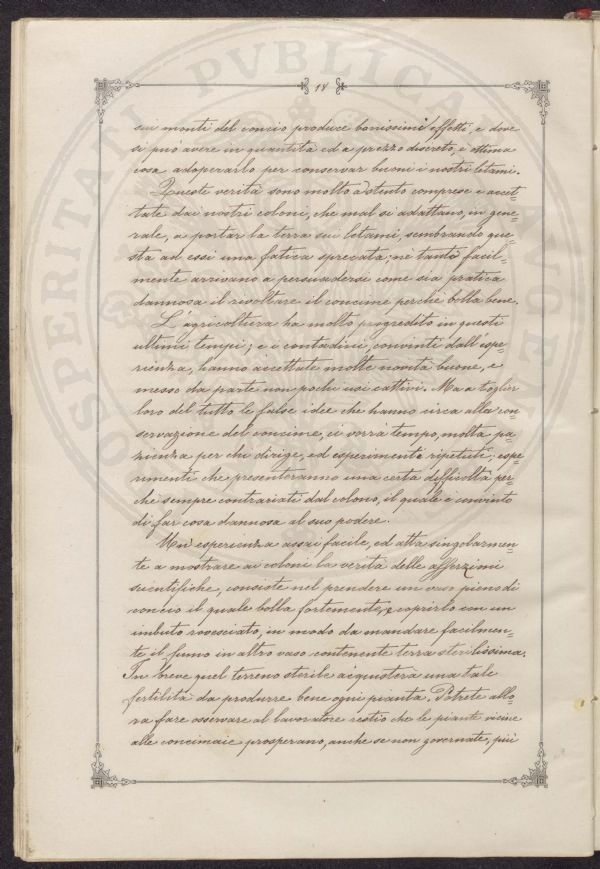 PROSPERITATI PVBLICAE AVGENDAE
18
sui monti del concio produce bonissimi effetti, e dove
si può avere in quantità ed a prezzo discreto, è ottima
cosa adoperarlo per conservar buoni i nostri letami.
Queste verità sono molto a stento comprese e accet=
tate dai nostri coloni, che mal si adattano, in gene=
rale, a portar la terra sui letami, sembrando que=
sta ad essi una fatica sprecata; nè tanto facil=
mente arrivano a persuadersi come sia pratica
dannosa il rivoltare il concime perchè bolla bene.
L'agricoltura ha molto progredito in questi
ultimi tempi; e i contadini, convinti dall'espe=
rienza, hanno accettate molte novità buone, e
messo da parte non pochi usi cattivi. Ma a toglier
loro del tutto le false idee che hanno circa alla con=
servazione del concime, ci vorrà tempo, molta pa=
zienza per chi dirige, ed esperimenti ripetuti; espe=
rimenti che presenteranno una certa difficoltà per=
chè sempre contrariati dal colono, il quale è convinto
di far cosa dannosa al suo podere.
Un'esperienza assai facile, ed atta singolarmen=
te a mostrare ai coloni la verità delle asserzioni
scientifiche, consiste nel prendere un vaso pieno di
concio il quale bolla fortemente, e coprirlo con un
imbuto rovesciato, in modo da mandare facilmen=
te il fumo in altro vaso contenente terra sterilissima.
In breve quel terreno sterile acquisterà una tale
fertilità da produrre bene ogni pianta. Potrete allo=
ra fare osservare al lavoratore restio che le piante vicine
alle concimaie prosperano, anche se non governate, più